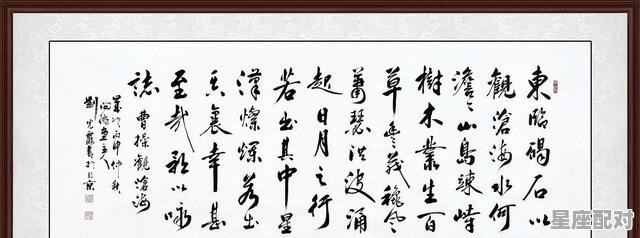 東臨碣石以
觀滄海水何
澹澹山島竦峙
樹木叢生百
草豐茂秋風
蕭瑟洪波涌
起日月之行
若出其中星
漢燦爛若出
其裏幸甚
至哉歌以咏
誌 曹操觀滄海
歲次丙申仲秋
主人
劉光霞書於北京
星座配对